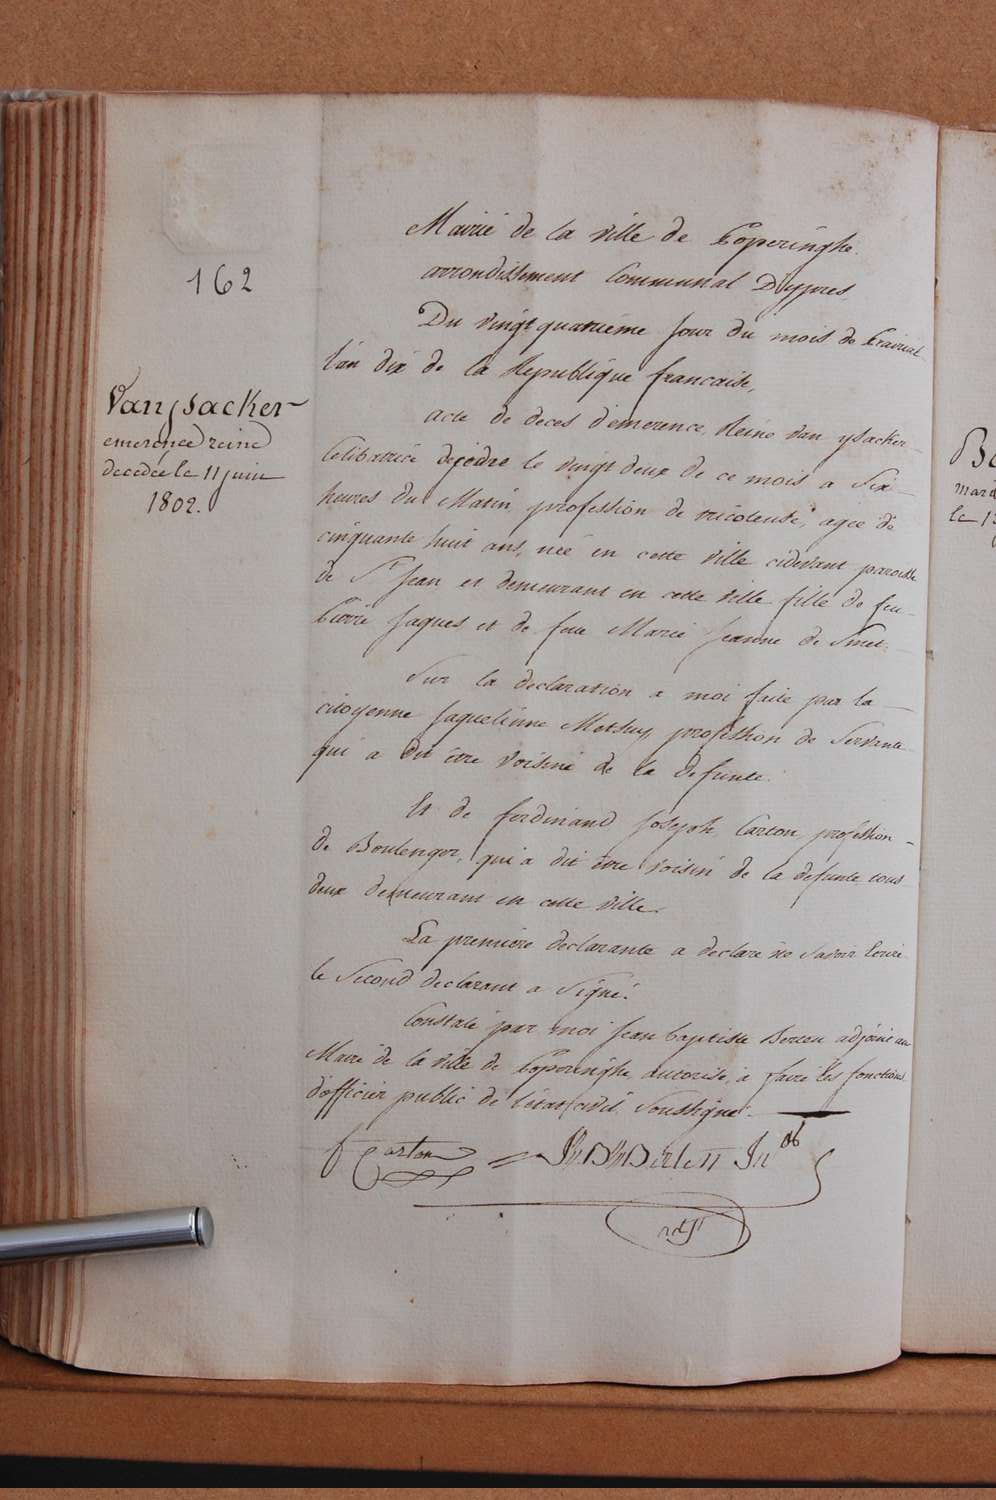 162
Vanysacker
emerence reine
decedée le 11 juin
1802.
Mairie de la ville de Poperinghe.
arrondissement Communal D'ypres,
Du vingt quatrieme jour du mois de Prairial
l'an dix de la Republique francaise,
acte de deces d'emerence Reine van ysacker
Celibatrice decedée le vingt deux de ce mois a Six
heures du Matin, profession de tricoteuse, agee de
cinquante huit ans, née en cette ville cidevant paroisse
de St Jean et demeurant en cette ville fille de feu
Pierre Jaques et de feue Marie Jeanne de Smet.
Sur la declaration a moi faite par la
citoyenne Jaquelinne profession de Servante
qui a dit être voisine de la defunte.
Et de ferdinand Joseph Carton profession
de Boulenger, qui a dit être voisin de la defunte tous
deux demeurant en cette ville.
La premiere declarante a declaré ne savoir Ecrire
le Second declarant a Signé.
Constaté par moi Jean baptiste adjoint au
Maire de la ville de Poperinghe autorisé, a faire les fonctions
d'officier public de l'etat civil Soussigné.
f Carton
adjt
Ba
mard
le 1